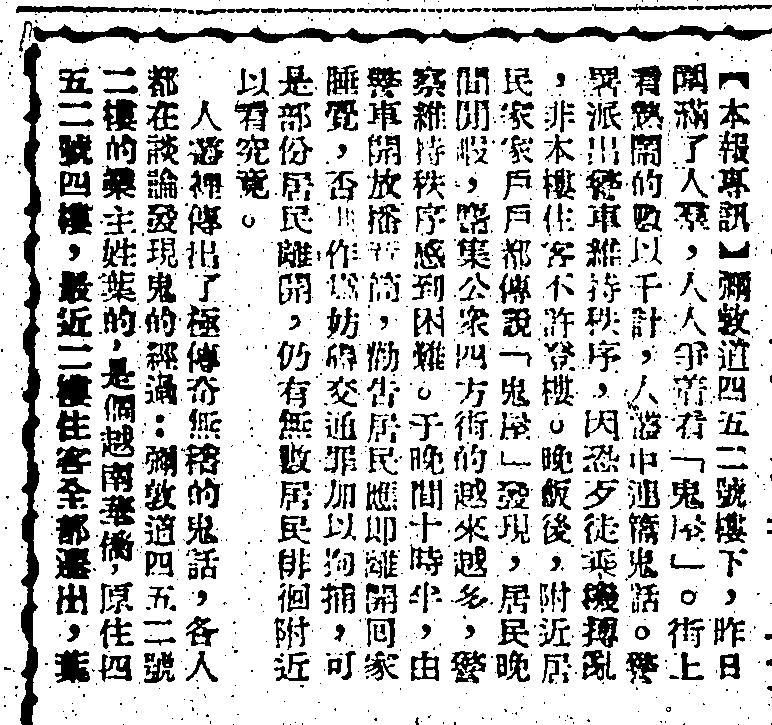 【本報專訊】彌敦道四五二號樓下，昨日
圍滿了人羣，人人爭着看「鬼屋」。街上
看熱鬧的數以千計，人談中連篇鬼話。警
署派出警車維持秩序，因恐歹徒乘機搏亂
，非本樓住客不許登樓。晚飯後，附近居
民家家戶戶都傳說「鬼屋」發現，居民晚
間閒暇，齊集公衆四方街的越來越多，警
察維持秩序感到困難。于晚間十時半，由
警車開放播音筒，勸告居民應即離開回家
睡覺，否則作爲妨礙交通罪加以拘捕，可
是部份居民離開，仍有無數居民徘徊附近
以看究竟。
人叢裡傳出了極傳奇無稽的鬼話，各人
都在談論發現鬼的經過：彌敦道四五二號
二樓的業主姓葉的，是個越南華僑，原住四
五二號四樓，最近二樓住客全部遷出，葉